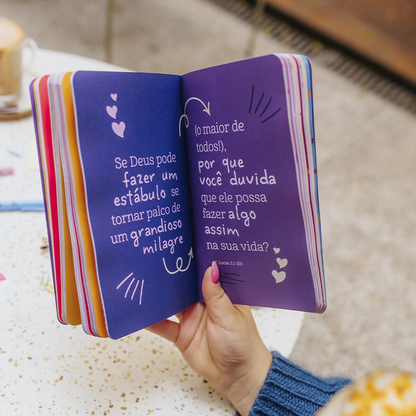 Se Deus pode
fazer um
estábulo se
tornar palco de
um grandioso
milagre
(o maior de
todos!),
por que
você duvida
que ele possa
fazer algo
assim
na sua vida?
Lucas 2.1-20)